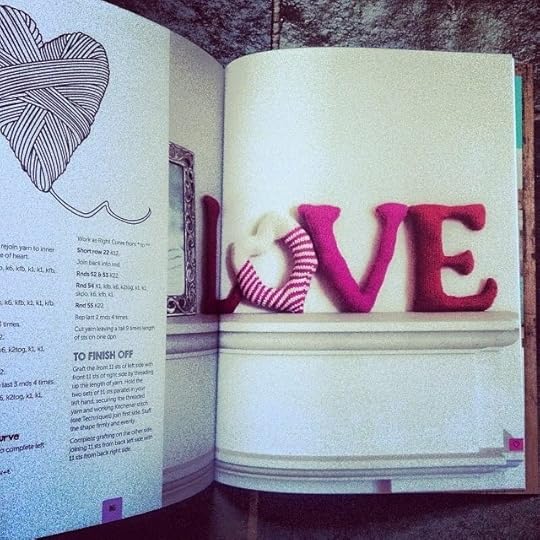 rejoin yarn to inner
of heart.
k6, kfb, k1, k1, kfb,
k6, kfb, k1, k1, kfb.
times.
k6, k2tog, k1, k1,
2.
last 3 rnds 4 times.
k6, k2tog, k1, k1,
urve
to complete left
Work as Right Curve from * to **
Short row 22 K12.
Join back into rnd.
Rnds 52 & 53 K22.
Rnd 55 K22.
Rep last 2 rnds 4 times.
Cut yarn leaving a tail 9 times length
of sts on one dpn.
TO FINISH OFF
Graft the front 11 sts of left side with
front 11 sts of right side by threading
up the length of yarn. Hold the
two sets of 11 sts parallel in your
left hand, securing the threaded
yarn and working Kitchener stitch
(see Techniques) join first side. Stuff
the shape firmly and evenly.
Complete grafting on the other side,
joining 11 sts from back left side with
11 sts from back right side.
86
LOVE